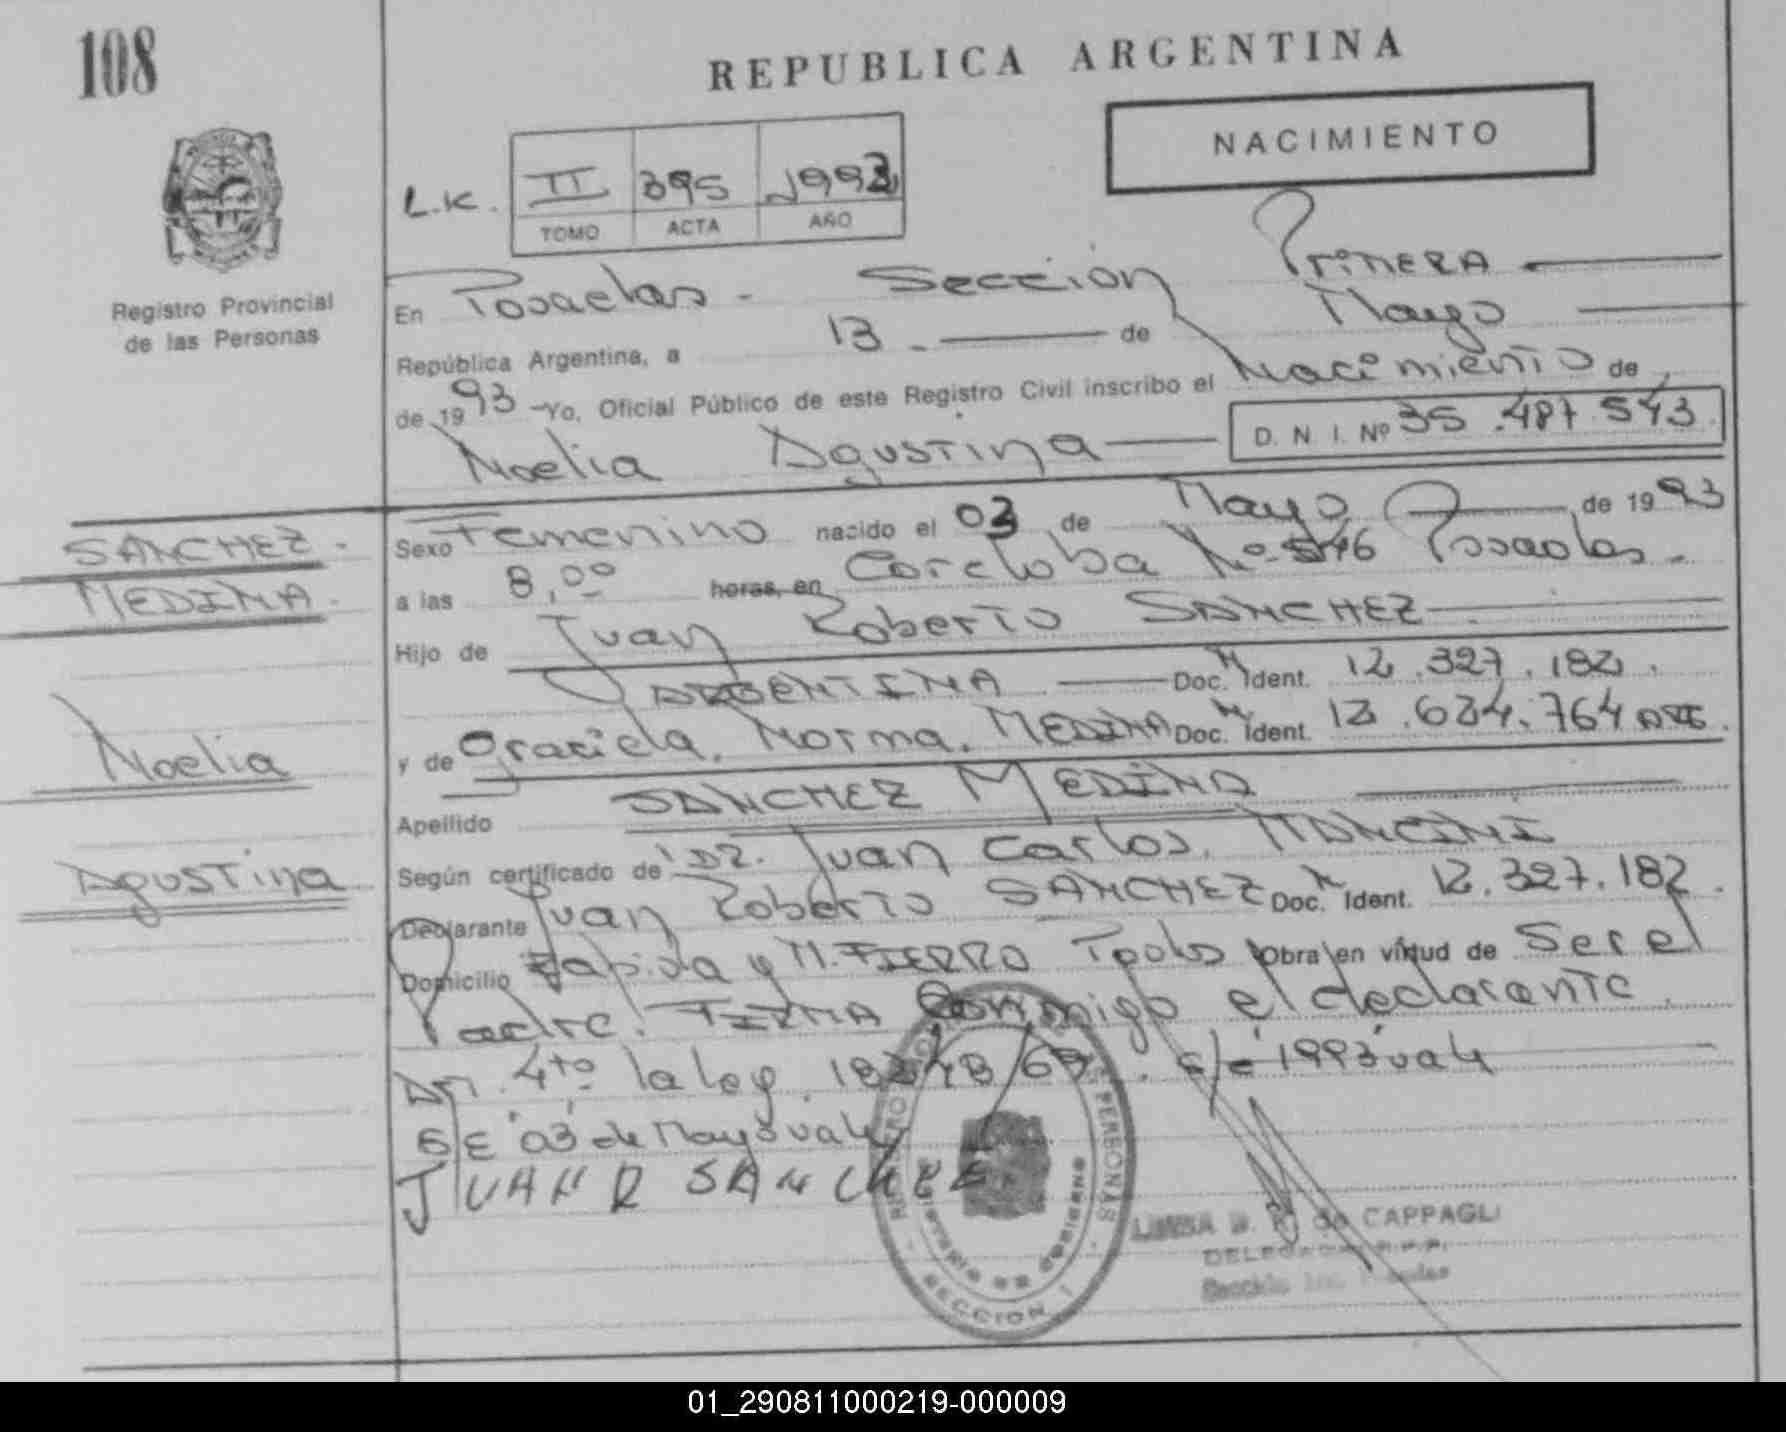 108
REPUBLICA ARGENTINA
NACIMIENTO
L.K. II 395 1993
TOMO ACTA AÑO
Registro Provincial
de las Personas
En Posadas - Sección Primera
República Argentina, a 13 de Mayo
de 1993 Yo, Oficial Público de este Registro Civil inscribo el Nacimiento de
Noelia Agustina D. N. I. Nº 35.487.543
SANCHEZ
MEDINA
Noelia
Agustina
Sexo Femenino nacido el 03 de Mayo de 1993
a las 8,00 horas, en Cordoba Nº Posadas
Hijo de Juan Roberto SANCHEZ
ARGENTINA Doc. Ident. 12.327.182.
y de Graciela Norma MEDINA Doc. Ident. 764
Apellido SANCHEZ MEDINA
Según certificado de Juan Carlos MANCINI
Declarante Juan Roberto SANCHEZ Doc. Ident. 12.327.182.
Domicilio y M. FIERRO obra en virtud de Ser el
Padre. FIRMA Conmigo el declarante.
4to la ley c/e 1993 vale
E/E 03 de Mayo vale
JUAN R SANCHEZ
PERSONAS
SECCION 1
de CAPPAGLI
01_290811000219-000009